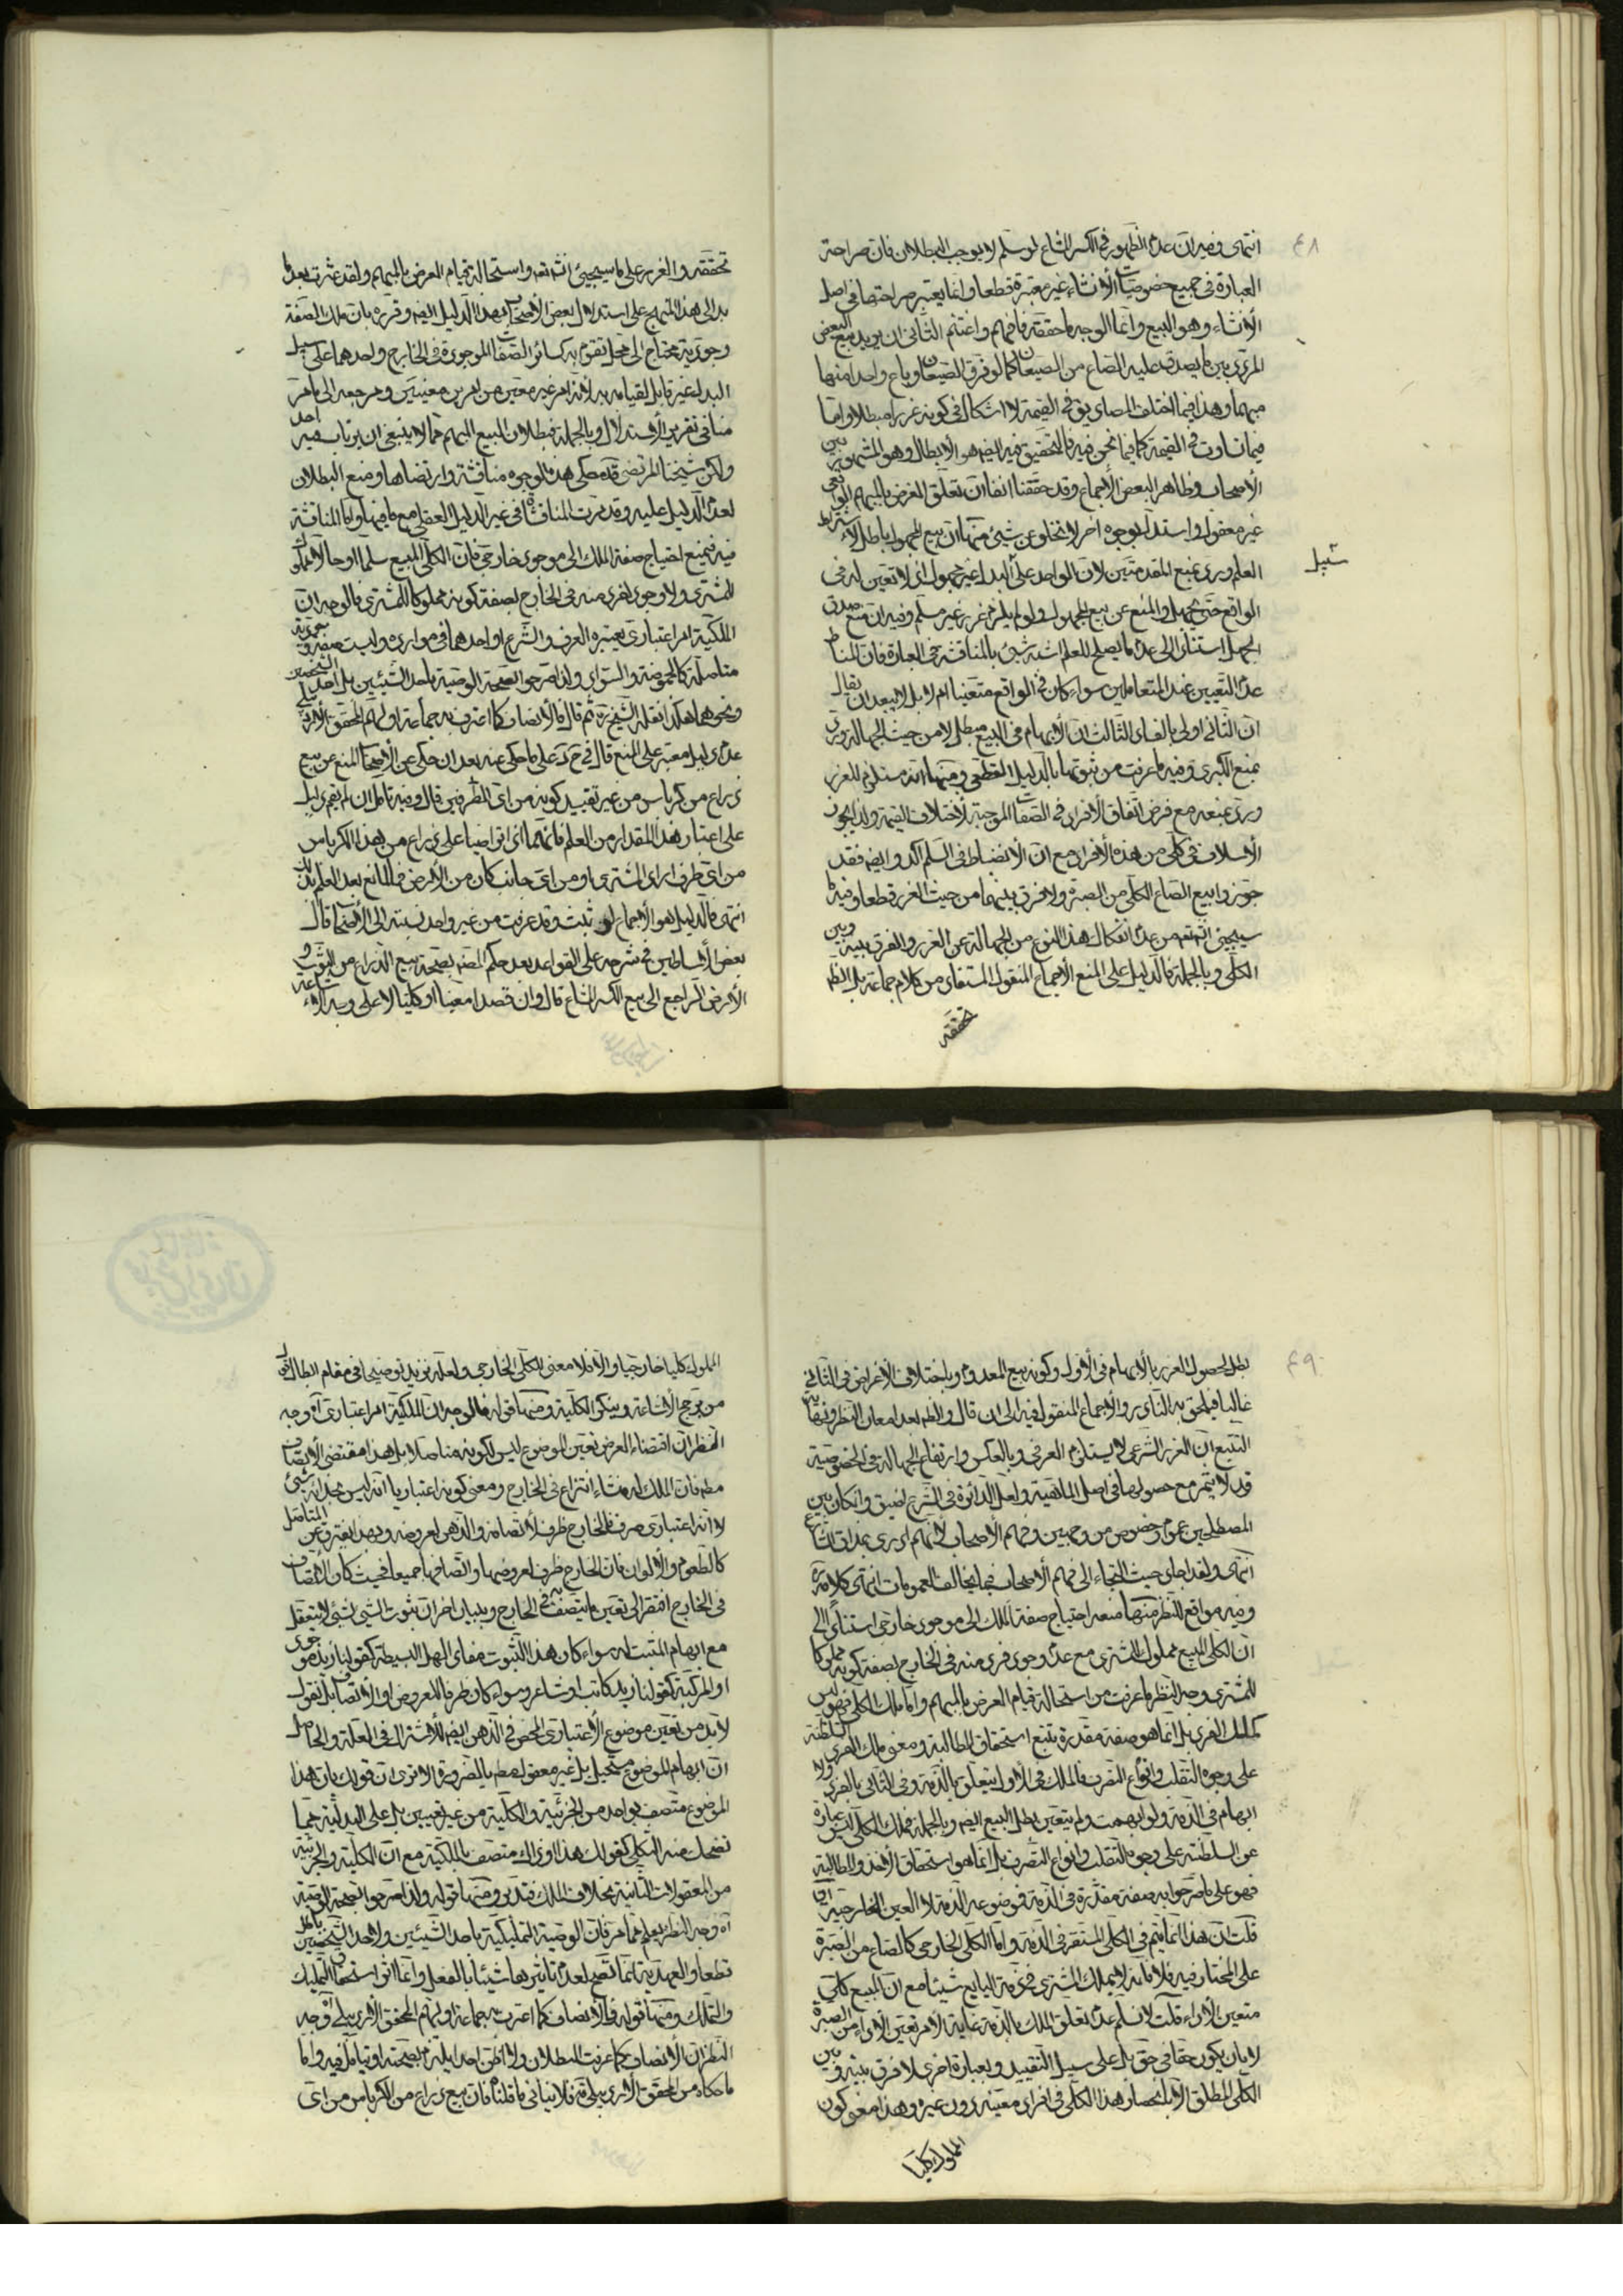 ٤٨
انتهى وفيه ان عدم الظهور في الكسر المشاع لو سلم لا يوجب البطلان فان صراحة
العبارة في جميع خصوصيات الأنشاء غير معتبرة قطعا وانما يعتبر صراحتها في اصل
الأنشاء وهو البيع وانما الوجه ما حققته فافهم واغتنم الثاني ان يريد به البعض
المردد بين ما يصدق عليه الصاع من الصيعان كما لو فرق الصيعان وباع واحدا منها
مبهما وهذا فيما اختلف المصاديق في القيمة لا اشكال في كونه غررا مبطلا واما
فيما تساوت في القيمة كما فيما نحن فيه فالتحقيق فيه ايضا هو الأبطال وهو المشهور بين
الأصحاب وظاهر البعض الأجماع وقد حققنا انفا ان تعلق الغرض بالمبهم الواقعي
غير معقول واستدل بوجوه اخر لا تخلو عن شيئ منها ان بيع المجهول باطل لاشتراط
العلم ورد بمنع المقدمتين لان الواحد على البدل غير مجهول اذ لا تعين له في
الواقع حتى يجهل والمنع عن بيع المجهول ولو لم يلزم غرر غير مسلم وفيه ان منع صدق
الجهل استنادا الى عدم ما يصلح للعلم اشبه شيئ بالمناقشة في العبارة فان المناط
عدم التعيين عند المتعاملين سواء كان في الواقع متعينا ام لا بل لا يبعد ان يقال
ان الثاني اولى بالفساد الثالث ان الأبهام في البيع مبطل لا من حيث الجهالة ورد
بمنع الكبرى وفيه ما عرفت من ثبوتها بالدليل القطعي ومنها انه مستلزم للغرر
ورد بمنعه مع فرض اتفاق الافراد في الصفات الموجبة لأختلاف القيمة ولذا يجوز
الأسلاف في كلي من هذه الأفراد مع ان الأنضباط في السلم آكد وايضا فقد
جوزوا بيع الصاع الكلي من الصبرة ولا فرق بينهما من حيث الغرر قطعا وفيه ما
سيجيئ انشه تعه من عدم انفكاك هذا النوع من الجهالة عن الغرر والفرق بينه وبين
الكلي وبالجملة فالدليل على المنع الأجماع المنقول المستفاد من كلام جماعة بل الظه
تحققه
تحققه والغرر على ما سيجيئ انشه تعه واستحالة قيام العرض بالمبهم ولقد عثرت بعد ما
بدا لي هذا المنهج على استدلال بعض الأصحاب بهذا الدليل ايضا وقرره بان ملك الصفة
وجودية تحتاج الى محل تقوم به كسائر الصفات الموجودة في الخارج واحدهما على سبيل
البدل غير قابل لقيامه به لأنه امر غير معين من امرين معينين ومرجعه الى ما مر
منا في تقرير الأستدلال وبالجملة فبطلان المبيع المبهم مما لا ينبغي ان يرتاب فيه احد
ولكن شيخنا المرتضى قده حكى هذه الوجوه مناقشة وارتضاها ومنع البطلان
لعدم الدليل عليه وقد مرت المناقشة في غير الدليل العقلي مع ما فيها واما المناقشة
فيه فبمنع احتياج صفة الملك الى موجود خارجي فان الكلي المبيع سلما او حالا مملوك
للمشتري ولا وجود لفرد منه في الخارج بصفة كونه مملوكا للمشتري فالوجه ان
الملكية امر اعتباري يعتبره العرف والشرع او احدهما في موارده وليست صفة وجودية
متاصلة كالحموضة والسواد ولذا صرحوا بصحة الوصية باحد الشيئين بل لأحد الشخصين
ونحوهما هكذا نقله الشيخ ره ثم قال فالأنصاف كما اعترف به جماعة اولهم المحقق الأردبيلي
عدم دليل معتبر على المنع قال في ح د على ما حكى عنه بعد ان حكى عن الأصحاب المنع عن بيع
ذراع من كرباس من غير تقييد كونه من اي الطرفين قال وفيه تامل ان لم يقم دليل
على اعتبار هذا المقدار من العلم فانهما اذا تراضيا على ذراع من هذا الكرباس
من اي طرف اراد المشتري او من اي جانب كان من الأرض فما المانع بعد العلم بذلك
انتهى فالدليل هو الأجماع لو ثبت وقد عرفت من غير واحد نسبته الى الأصحاب قال
بعض الأساطين في شرحه على القواعد بعد حكم المصنف بصحة بيع الذراع من الثوب و
الأرض الراجع الى بيع الكسر المشاع قال وان قصدا معينا او كليا لا على وجه الأشاعة
٤٩
بطل لحصول الغرر بالأبهام في الأول وكونه بيع المعدوم وباختلاف الأغراض في الثاني
غالبا فيلحق به النادر وللأجماع المنقول فيه الى ان قال والظه بعد امعان النظر ونهاية
التتبع ان الغرر الشرعي لا يستلزم العرفي وبالعكس وارتفاع الجهالة في الخصوصية
قد لا يثمر مع حصولها في اصل الماهية ولعل الدائرة في الشرع اضيق وان كان بين
المصطلحين عموم وخصوص من وجهين وفهم الأصحاب لأنهم ادرى بمذاق الشارع
انتهى ولقد اجاد حيث التجاء الى فهم الأصحاب فيما يخالف العمومات انتهى كلامه ره
وفيه مواقع للنظر منها منعه احتياج صفة الملك الى موجود خارجي استنادا الى
ان الكلي المبيع مملوك للمشتري مع عدم وجود فرد منه في الخارج بصفة كونه مملوكا
للمشتري وجه النظر ما عرفت من استحالة قيام العرض بالمبهم واما ملك الكلي فهو ليس
كملك الفرد بل انما هو صفة مقدرة يتبع استحقاق المطالبة ومعنى ملك الفرد السلطنة
على وجوه التقلب وانواع التصرف فالملك في الأول يتعلق بالذمة وفي الثاني بالفرد ولا
ابهام في الذمة ولو ابهمت ولم يتعين بطل البيع ايضا وبالجملة فملك الكلي ليس عبارة
عن السلطنة على وجوه التقلب وانواع التصرف بل انما هو استحقاق الأخذ والمطالبة
فهو على ما صرحوا به صفة مقدرة في الذمة فموضوعه الذمة لا العين الخارجية
قلت ان هذا انما يتم في الكلي المستقر في الذمة واما الكلي الخارجي كالصاع من الصبرة
على المختار فيه فلا فانه لا يملك المشتري في ذمة البايع شيئا مع ان المبيع كلي
متعين الأداء قلت لا نسلم عدم تعلق الملك بالذمة غاية الامر تعين الأداء من الصبرة
لا بان يكون حقا في حق بل على سبيل التقييد وبعبارة اخرى لا فرق بينه وبين
الكلي المطلق الا بانحصار هذا الكلي في افراد معينة دون غيره وهذا معنى كون
المملوك كليا
المملوك كليا خارجيا والا فلا معنى للكلي الخارجي ولعله نزيد توضيحا في مقام ابطال قول
من يرجح الأشاعة وينكر الكلية ومنها قوله فالوجه ان الملكية امر اعتباري آه وجه
النظر ان اقتضاء العرض تعين الموضوع ليس لكونه متاصلا بل هذا مقتضى الأتصاف
مطه فان الملك له منشاء انتزاع في الخارج ومعنى كونه اعتباريا انه ليس بحذائه شيئ
لا انه اعتباري صرف فالخارج ظرف لأتصافه والذهن لعروضه وبهذا يفترق عن المتاصل
كالطعوم والألوان فان الخارج ظرف لعروضها واتصافها جميعا فحيث كان الأتصاف
في الخارج افتقر الى تعين ما يتصف به في الخارج وببيان اخر ان ثبوت الشيئ لشيئ لا يتعقل
مع ابهام المثبت له سواء كان هذا الثبوت مفاد الهل البسيطة كقولنا زيد موجود
او المركبة كقولنا زيد كاتب او شاعر وسواء كان ظرفا للعروض او الأتصاف بل نقول
لا بد من تعين موضوع الأعتباري المحض في الذهن ايضا للأشتراك في العلة والحاصل
ان ابهام الموضوع مستحيل بل غير معقول مطه بالضرورة الا ترى ان قولك بان هذا
الموضوع متصف بواحد من الجزئية والكلية من غير تعيين بل على البدلية مما
تضحك منه الثكلى كقولك هذا او ذاك متصف بالملكية مع ان الكلية والجزئية
من المعقولات الثانية بخلاف الملك فتدبر ومنها قوله ولذا صرحوا بصحة الوصية
آه وجه النظر يعلم مما مر فان الوصية التمليكية باحد الشيئين ولأحد الشخصين باطل
قطعا والعهدية انما تصح لعدم تاثيرها شيئا بالفعل وانما اثر استحقاق التمليك
والتملك ومنها قوله فالأنصاف كما اعترف به جماعة اولهم المحقق الأردبيلي آه وجه
النظر ان الأنصاف كما عرفت البطلان ولا اظن احدا يلتزم بصحته او يتامل فيه واما
ما حكاه من المحقق الأردبيلي قده فلا ينافي ما قلناه فان بيع ذراع من الكرباس من اي